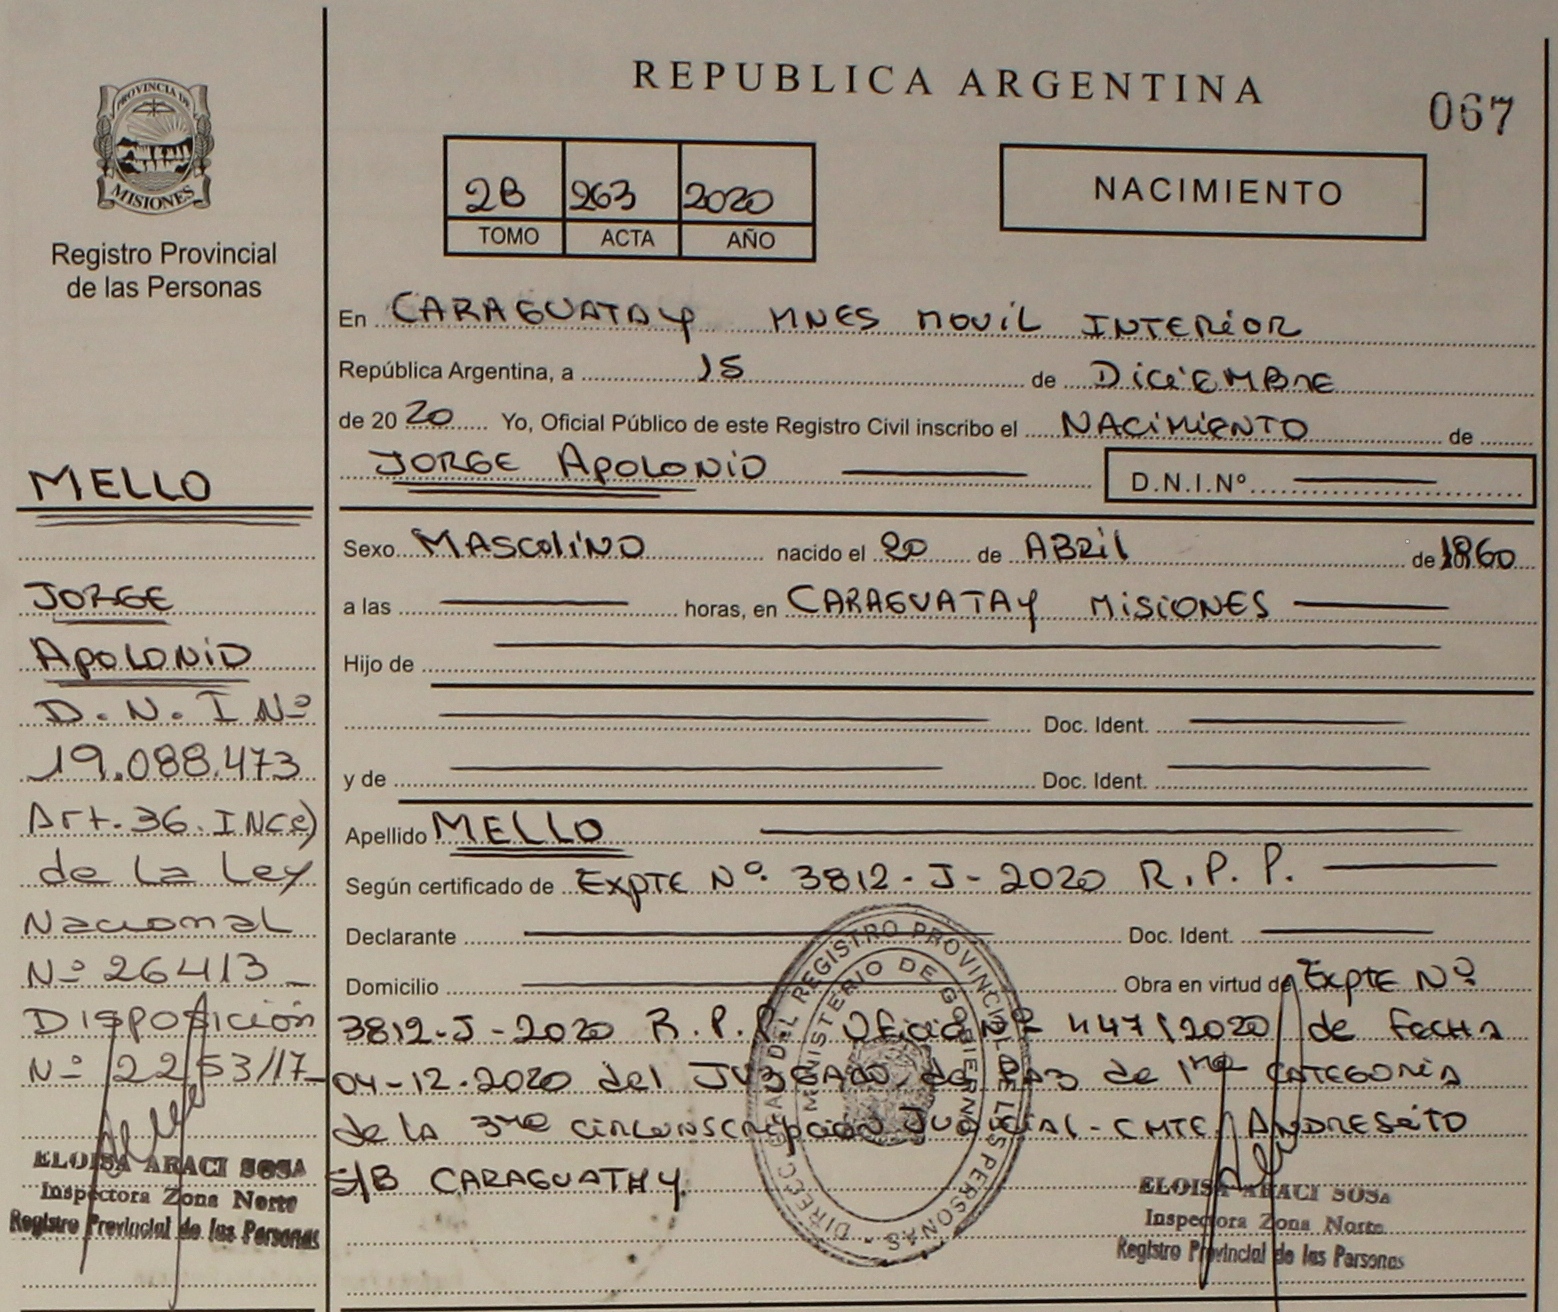 REPUBLICA ARGENTINA
067
PROVINCIA DE
MISIONES
Registro Provincial
de las Personas
2B 263 2020
TOMO ACTA AÑO
NACIMIENTO
En CARAGUATAY MNES MOVIL INTERIOR
República Argentina, a 15 de DiciEMBRE
de 2020 Yo, Oficial Público de este Registro Civil inscribo el NACIMIENTO de
JORGE APOLONIO
D.N.I.Nº
Sexo MASCULINO nacido el 20 de ABRIL de 1960
a las horas, en CARAGUATAY MISIONES
Hijo de
Doc. Ident.
y de Doc. Ident.
Apellido MELLO
Según certificado de EXPTE Nº. 3812-J-2020 R.P.P.
Declarante Doc. Ident.
Domicilio Obra en virtud de EXPTE Nº
3812-J-2020 R.P.P. Oficio Nº 447/2020 de FECHA
04-12-2020 del JUZGADO de PAZ de 1ra CATEGORIA
de la 3ra CIRCUNSCRIPCION JUDICIAL-CMTE ANDRESITO
S/B CARAGUATAY
MELLO
JORGE
APOLONIO
D.N.I Nº
19.088.473
Art.36.INCe)
de La Ley
Nacional
Nº 26413
Disposición
Nº 2253/17
ELOISA ARACI SOSA
Inspectora Zona Norte
Registro Provincial de las Personas
DIRECC. GRAL DEL REGISTRO PROVINCIAL DE LAS PERSONAS
MINISTERIO DE GOBIERNO
ELOISA ARACI SOSA
Inspectora Zona Norte
Registro Provincial de las Personas